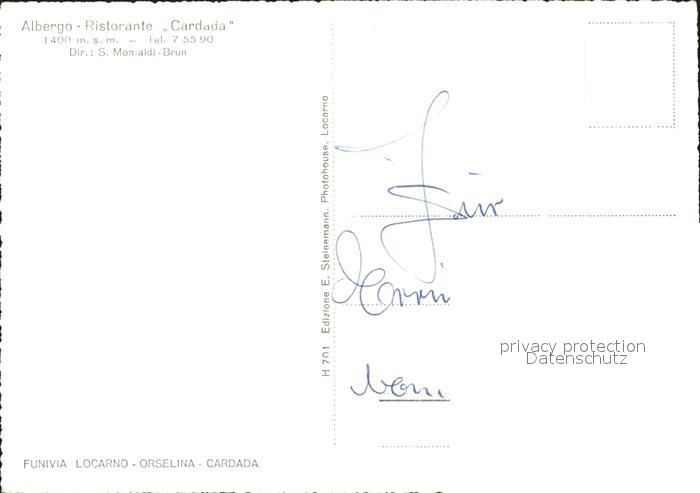 Albergo - Ristorante „Cardada"
1400 m. s. m. – Tel. 7 55 90
Dir.: S. Monialdi-Brun
H 701 Edizione E. Steinemann, Photohouse, Locarno
Für
privacy protection
Datenschutz
FUNIVIA LOCARNO - ORSELINA - CARDADA